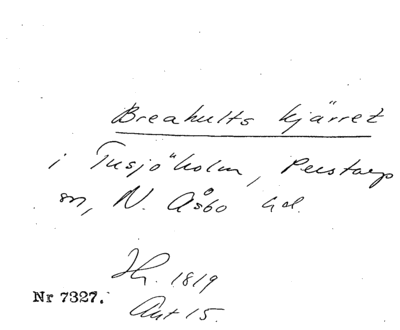 Breahults kjärret
i Tusjöholm, Perstorp
sn, N. Åsbo hd.
Jh. 1819
Nr 7327.
Akt 15.